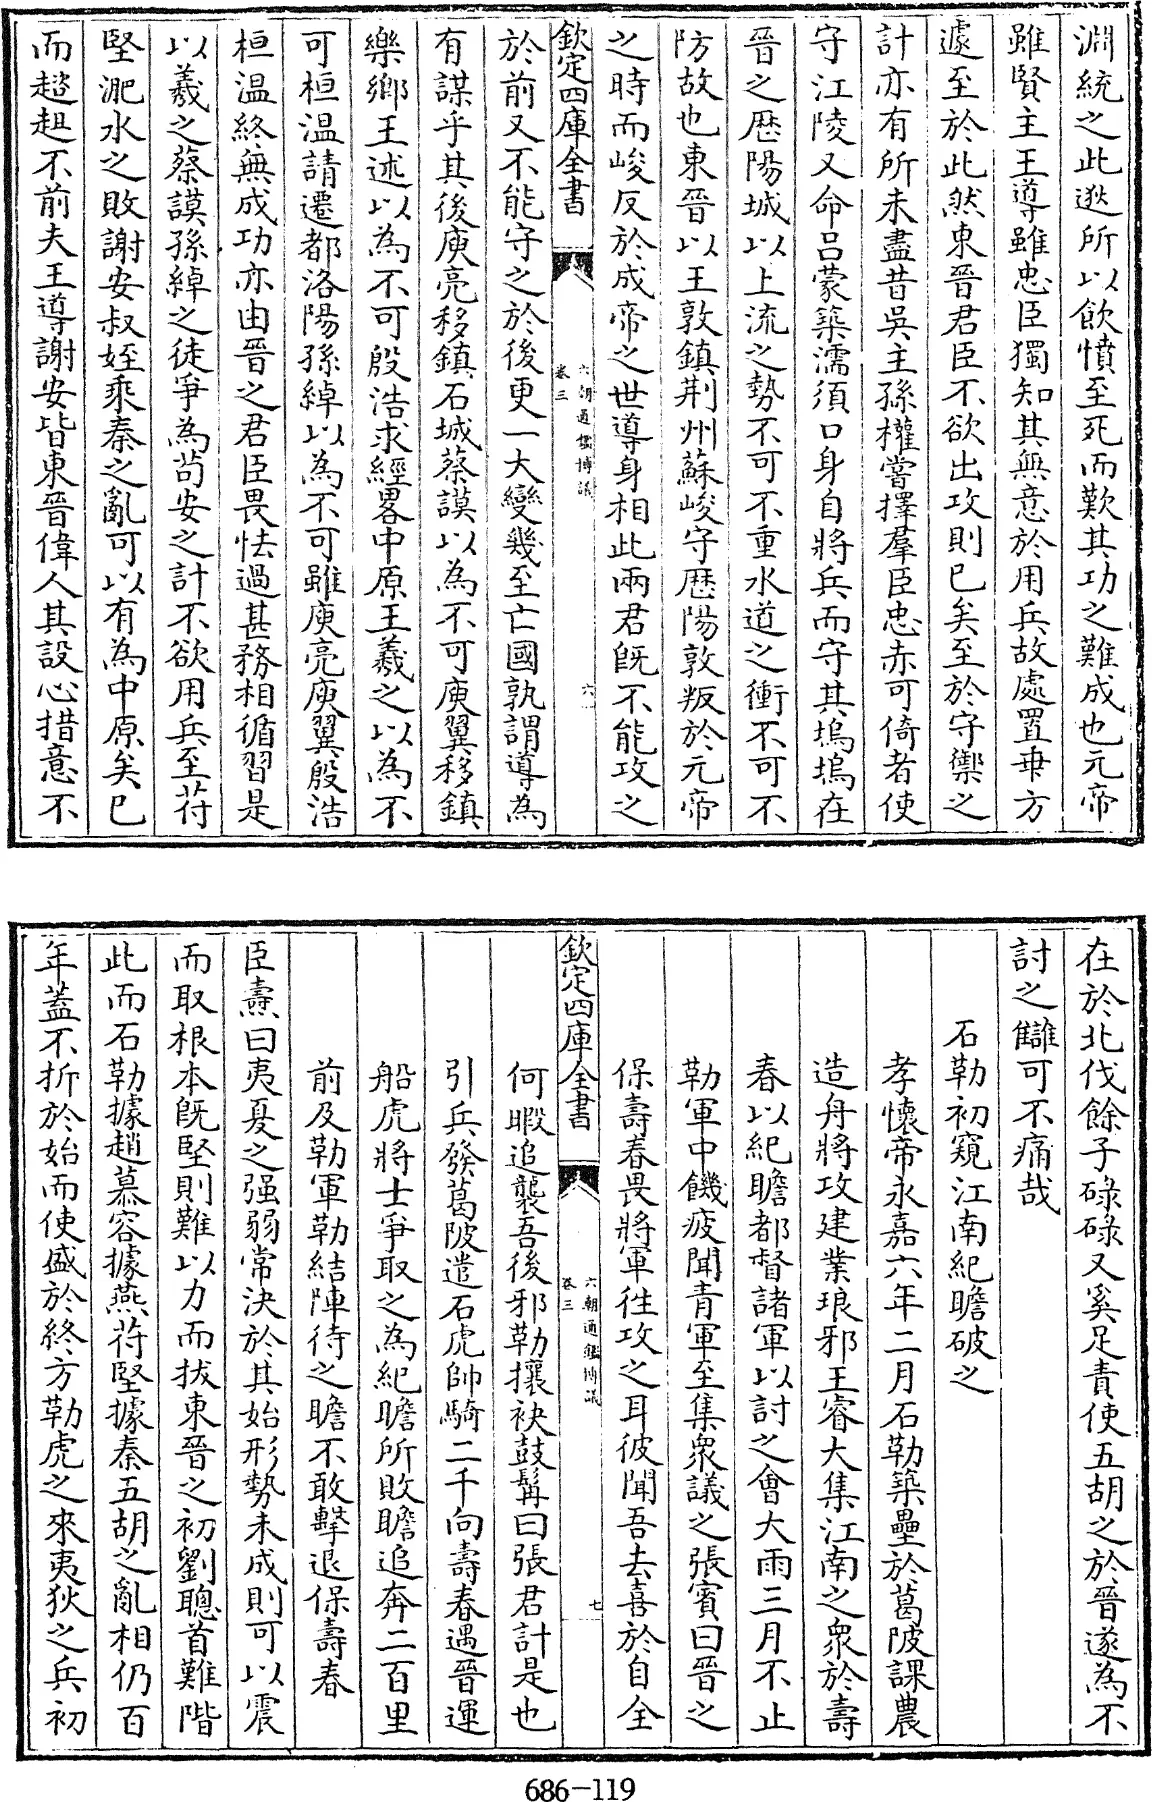 淵統之此逖所以飲憤至死而歎其功之難成也元帝
雖賢主王導雖忠臣獨知其無意於用兵故處置乖方
遽至於此然東晉君臣不欲出攻則已矣至於守禦之
計亦有所未盡昔吳主孫權嘗擇羣臣忠赤可倚者使
守江陵又命呂蒙築濡須口身自將兵而守其塢塢在
晉之歴陽城以上流之勢不可不重水道之衝不可不
防故也東晉以王敦鎮荆州蘇峻守歴陽敦叛於元帝
之時而峻反於成帝之世導身相此兩君既不能攻之
欽定四庫全書
卷三
六朝通鑑博議
六
於前又不能守之於後更一大變幾至亡國孰謂導為
有謀乎其後庾亮移鎮石城蔡謨以為不可庾翼移鎮
樂鄉王述以為不可殷浩求經畧中原王羲之以為不
可桓温請遷都洛陽孫綽以為不可雖庾亮庾翼殷浩
桓温終無成功亦由晉之君臣畏怯過甚務相循習是
以羲之蔡謨孫綽之徒爭為茍安之計不欲用兵至苻
堅淝水之敗謝安叔姪乘秦之亂可以有為中原矣已
而趑趄不前夫王導謝安皆東晉偉人其設心措意不
在於北伐餘子碌碌又奚足責使五胡之於晉遂為不
討之讎可不痛哉
石勒初窺江南紀瞻破之
孝懷帝永嘉六年二月石勒築壘於葛陂課農
造舟將攻建業琅邪王睿大集江南之衆於壽
春以紀瞻都督諸軍以討之會大雨三月不止
勒軍中饑疲聞青軍至集衆議之張賓曰晉之
保壽春畏將軍往攻之耳彼聞吾去喜於自全
欽定四庫全書
卷三
六朝通鑑博議
七
何暇追襲吾後邪勒攘袂鼓髯曰張君計是也
引兵發葛陂遣石虎帥騎二千向壽春遇晉運
船虎將士爭取之為紀瞻所敗瞻追奔二百里
前及勒軍勒結陣待之瞻不敢擊退保壽春
臣燾曰夷夏之强弱常決於其始形勢未成則可以震
而取根本既堅則難以力而拔東晉之初劉聰首難階
此而石勒據趙慕容據燕苻堅據秦五胡之亂相仍百
年蓋不折於始而使盛於終方勒虎之來夷狄之兵初
686-119